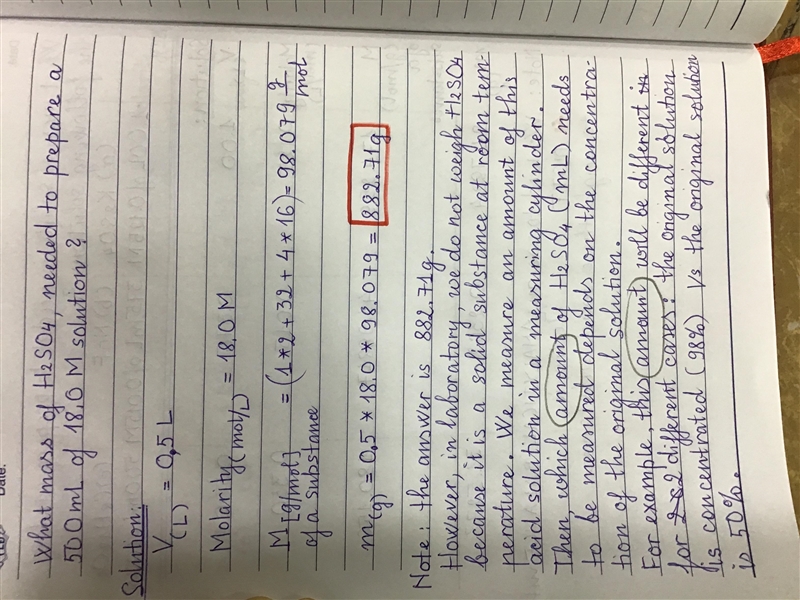 Date:
What mass of H2SO4, needed to prepare a
500 mL of 18.0 M solution?
Solution:
V(L) = 0,5 L
Molarity (mol/L) = 18.0 M
M [g/mol] of a substance = (1*2+32+4*16) = 98.079 g/mol
m(g) = 0.5 * 18.0 * 98.079 = 882.71g
Note: the answer is 882.71g.
However, in laboratory, we do not weigh H2SO4
because it is a solid substance at room tem-
perature. We measure an amount of this
acid solution in a measuring cylinder.
Then, which amount of H2SO4 (mL) needs
to be measured depends on the concentra-
tion of the original solution.
For example, this amount will be different in
for 2 different cases: the original solution
is concentrated (98%) Vs the original solution
is 50%.